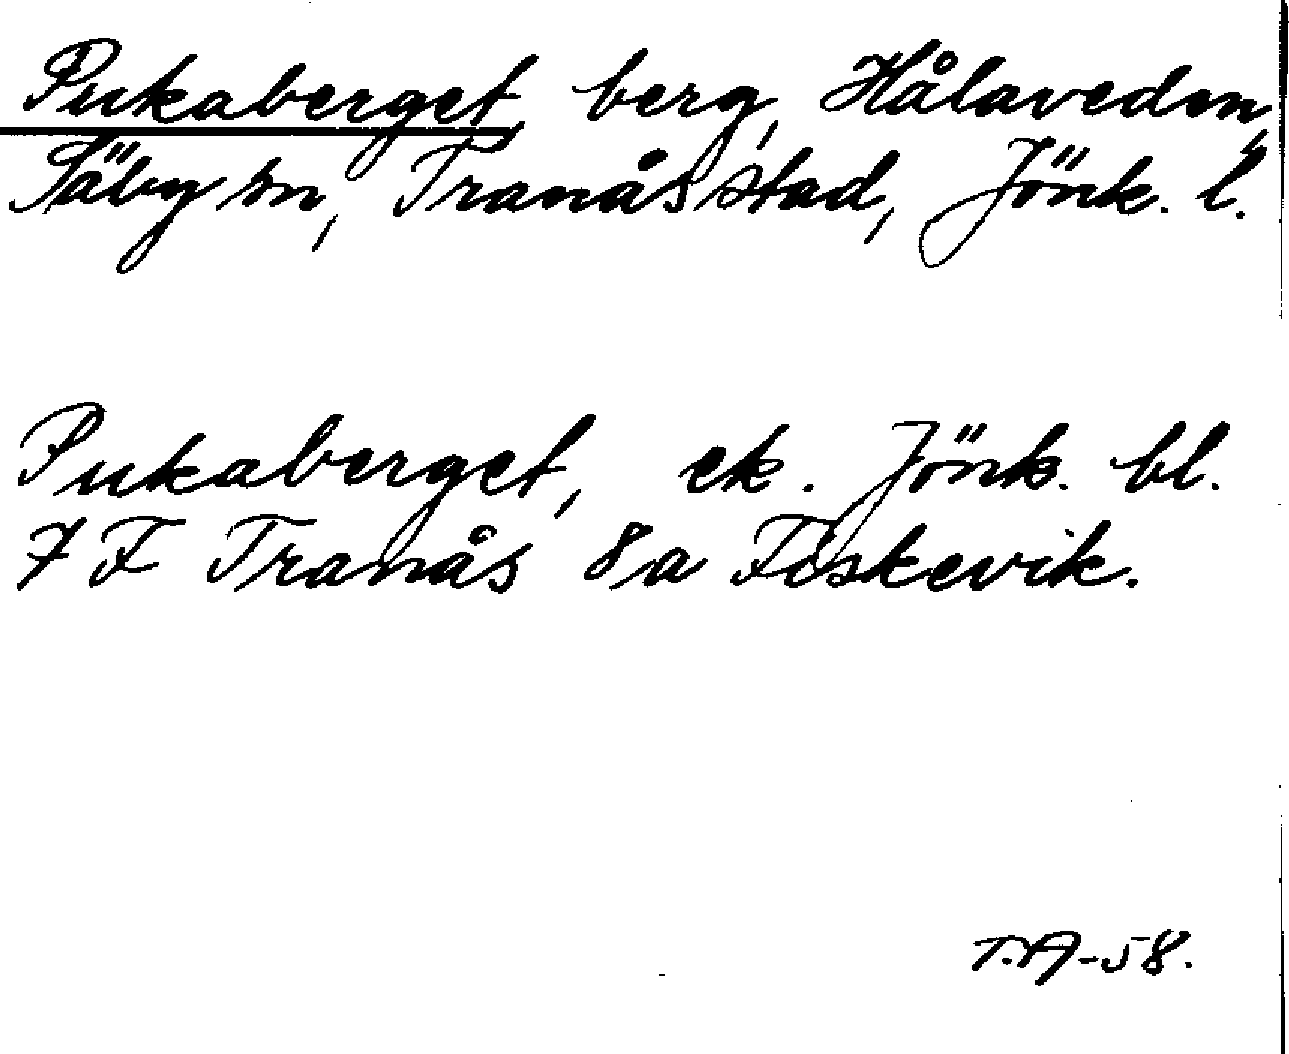 Pukaberget, berg, Hålaveden,
Säby sn, Tranås stad, Jönk. l.
Pukaberget, ek. Jönk. bl.
7 F Tranås 8a Fiskevik.
T.A-58.